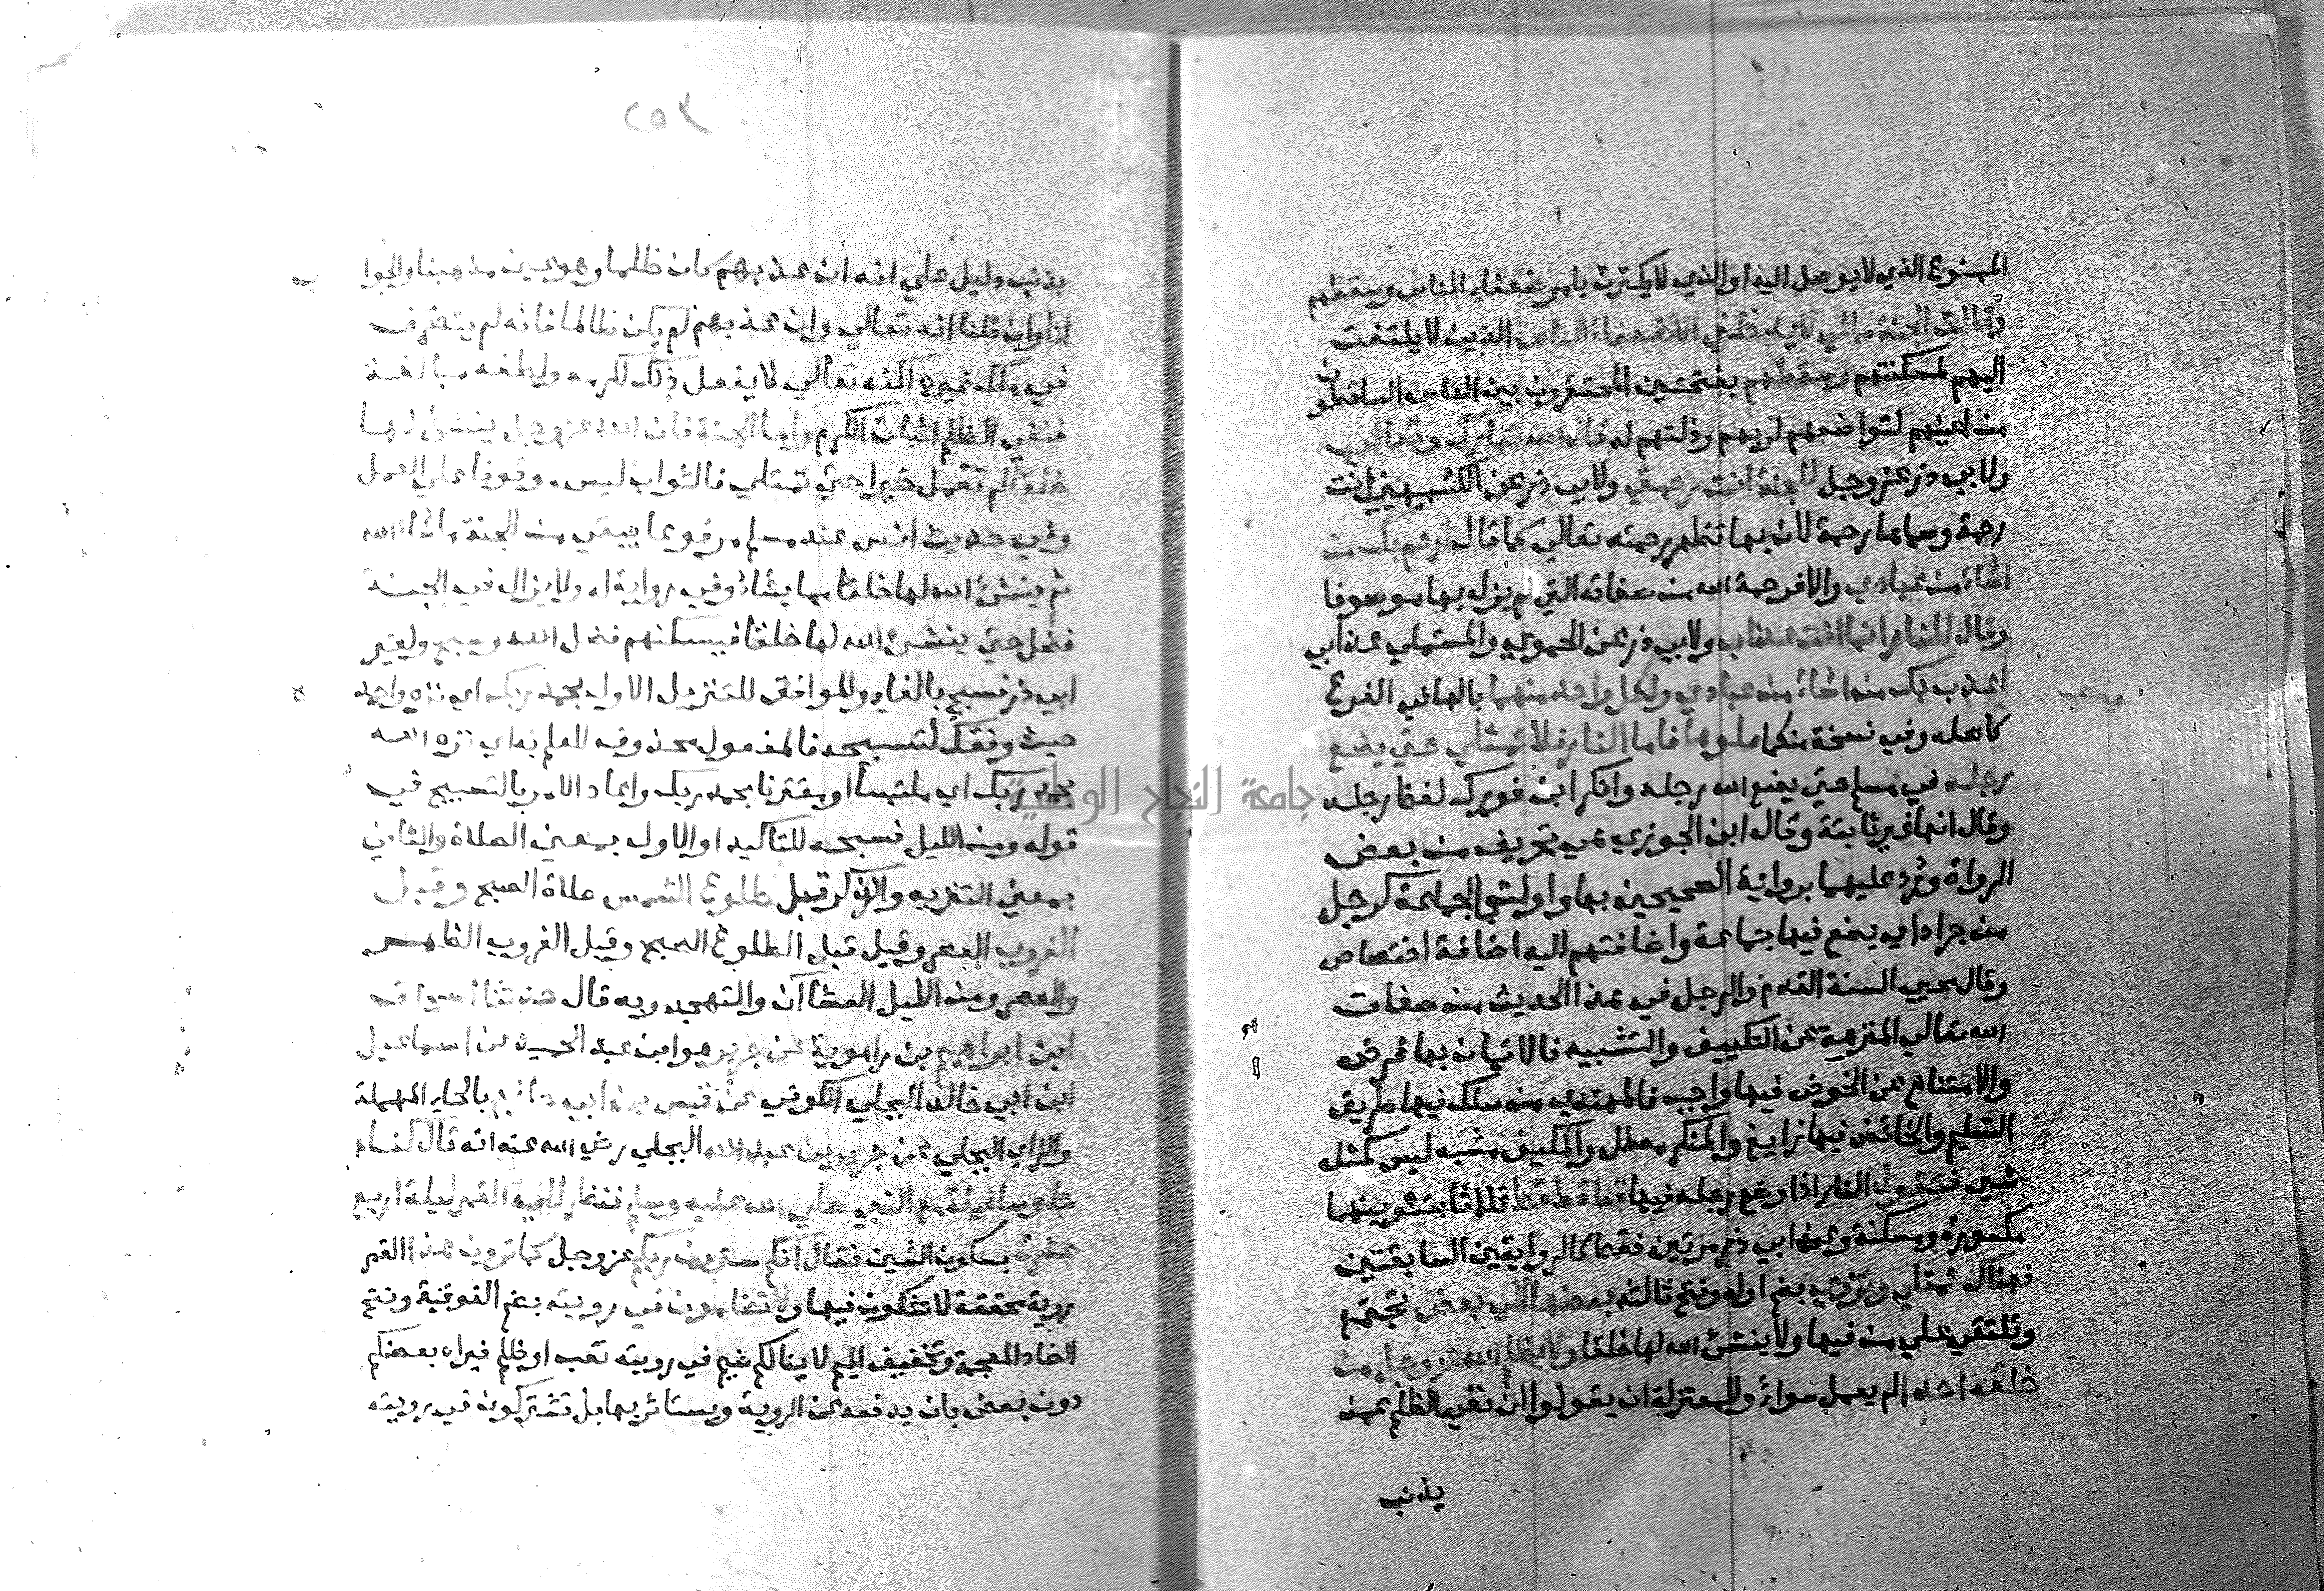 الممنوع الذي لا يوصل اليه او الذي لا يكترث بامر ضعفاء الناس وسقطهم
وقالت الجنة مالي لا يدخلني الا ضعفاء الناس الذين لا يلتفت
اليهم لمسكنتهم وسقطهم بفتحتين المحتقرون بين الناس الساقطون
من اعينهم لتواضعهم لربهم وذلتهم له قال الله تبارك وتعالي
ولابي ذر عز وجل للجنة انت رحمتي ولابي ذر عن الكشميهني انت
رحمة وسماها رحمة لان بها تظهر رحمته تعالي كما قال ارحم بك من
اشاء من عبادي والا فرحمة الله من صفاته التي لم يزل بها موصوفا
وقال للنار انما انت عذاب ولابي ذر عن الحموي والمستملي عذابي
اعذب بك من اشاء من عبادي ولكل واحدة منهما بالهاء في الفرع
كاصله وفي نسخة منكما ملوها فاما النار فلا تمتلي حتي يضع
رجله في مسلم حتي يضع الله رجله وانكر ابن فورك لفظ رجله
وقال انها غير ثابتة وقال ابن الجوزي هي تحريف من بعض
الرواة ورد عليهما برواية الصحيحين بها واولت بالجماعة كرجل
من جراد اي يضع فيها جماعة واضافتهم اليه اضافة اختصاص
وقال محيي السنة القدم والرجل في هذا الحديث من صفات
الله تعالي المنزهة عن التكييف والتشبيه فالايمان بها فرض
والامتناع عن الخوض فيها واجب فالمهتدي من سلك فيها طريق
التسليم والخائض فيها زايغ والمنكر معطل والمكيف مشبه ليس كمثله
شي فتقول النار اذا وضع رجله فيها قط قط قط ثلاثا بتنوينها
مكسورة ومسكنة وعند ابي ذر مرتين فقط كالروايتين السابقتين
فهناك تمتلي وتزوي بضم اوله وفتح ثالثه بعضها الي بعض تجتمع
وتلتقي علي من فيها ولا ينشئ الله لها خلقا ولا يظلم الله عز وجل من
خلقه احدا لم يعمل سوا وللمعتزلة ان يقولوا ان نفي الظلم عمن
يذنب
٢٥٣
يذنب دليل علي انه ان عذبهم كان ظلما وهو عين مذهبنا والجواب
انا وان قلنا انه تعالي وان عذبهم لم يكن ظالما فانه لم يتصرف
في ملك غيره لكنه تعالي لا يفعل ذلك لكرمه ولطفه مبالغة
فنفي الظلم اثبات الكرم واما الجنة فان الله عز وجل ينشئ لها
خلقا لم تعمل خيرا حتي تمتلي فالثواب ليس موقوفا علي العمل
وفي حديث انس عند مسلم مرفوعا يبقي من الجنة ماشاء الله
ثم ينشئ الله لها خلقا مما يشاء وفي رواية له ولا يزال في الجنة
فضل حتي ينشئ الله لها خلقا فيسكنهم فضل الجنة وسبح ولغير
ابي ذر فسبح بالفاء والموافق للتنزيل الاول بحمد ربك اي نزه واحمده
حيث وفقك لتسبيحه فالمفعول محذوف للعلم به اي نزه الله
بحمد ربك اي ملتبسا او مقترنا بحمد ربك واعاد الامر بالتسبيح في
قوله ومن الليل فسبحه للتاكيد او الاول بمعني الصلاة والثاني
بمعني التنزيه والذكر قبل طلوع الشمس صلاة الصبح وقبل
الغروب العصر وقيل قبل الطلوع الصبح وقبل الغروب الظهر
والعصر ومن الليل العشاآن والتهجد وبه قال حدثنا اسحاق
ابن ابراهيم بن راهوية عن جرير هو ابن عبد الحميد عن اسماعيل
ابن ابي خالد البجلي الكوفي عن قيس بن ابي حازم بالحاء المهملة
والزاي البجلي عن جرير بن عبد الله البجلي رضي الله عنه انه قال كنا
جلوسا ليلة مع النبي صلي الله عليه وسلم فنظر الي القمر ليلة اربع
عشرة بسكون الشين فقال انكم سترون ربكم عز وجل كما ترون هذا القمر
روية محققة لا تشكون فيها ولا تضامون في رويته بضم الفوقية وفتح
الضاد المعجمة وتخفيف الميم لا ينالكم ضيم في رويته تعب او ظلم فيراه بعضكم
دون بعض بان يدفعه عن الروية ويستاثر بها بل تشتركون في رويته
جامعة النجاح الوطنية